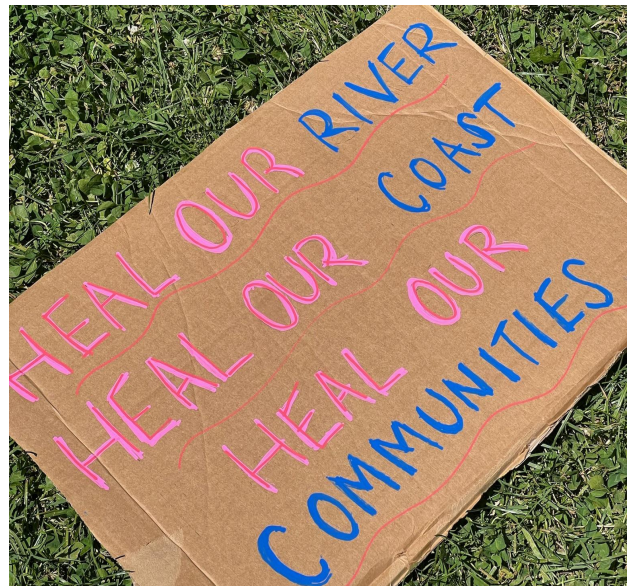 HEAL OUR RIVER
HEAL OUR COAST
HEAL OUR
COMMUNITIES